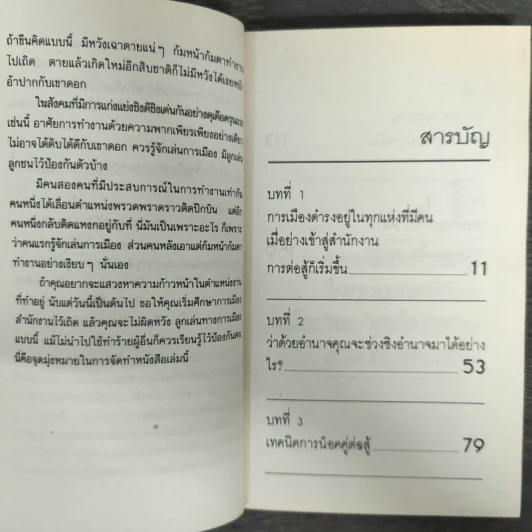 ถ้าขืนคิดแบบนี้ มีหวังเฉาตายแน่ๆ ก้มหน้าก้มตาทำงาน
ไปเถิด ตายแล้วเกิดใหม่อีกสิบชาติก็ไม่มีหวังได้เงยหน้า
อ้าปากกับเขาดอก
ในสังคมที่มีการแก่งแย่งชิงดีชิงเด่นกันอย่างดุเดือดรุนแรง
เช่นนี้ อาศัยการทำงานด้วยความพากเพียรเพียงอย่างเดียว
ไม่อาจได้ดิบได้ดีกับเขาดอก ควรรู้จักเล่นการเมือง มีลูกเล่น
ลูกชนไว้ป้องกันตัวบ้าง
มีคนสองคนที่มีประสบการณ์ในการทำงานเท่ากัน
คนหนึ่งได้เลื่อนตำแหน่งพรวดพราดราวติดปีกบิน แต่อีก
คนหนึ่งกลับติดแหงกอยู่กับที่ นี่มันเป็นเพราะอะไร ก็เพราะ
ว่าคนแรกรู้จักเล่นการเมือง ส่วนคนหลังเอาแต่ก้มหน้าก้มตา
ทำงานอย่างเงียบๆ นั่นเอง
ถ้าคุณอยากจะแสวงหาความก้าวหน้าในตำแหน่งงาน
ที่ทำอยู่ นับแต่วันนี้เป็นต้นไป ขอให้คุณเริ่มศึกษาการเมือง
สำนักงานไว้เถิด แล้วคุณจะไม่ผิดหวัง ลูกเล่นทางการเมือง
แบบนี้ แม้ไม่นำไปใช้ทำร้ายผู้อื่นก็ควรเรียนรู้ไว้ป้องกันตน
นี่คือจุดมุ่งหมายในการจัดทำหนังสือเล่มนี้
สารบัญ
บทที่ 1
การเมืองดำรงอยู่ในทุกแห่งที่มีคน
เมื่อย่างเข้าสู่สำนักงาน
การต่อสู้ก็เริ่มขึ้น 11
บทที่ 2
ว่าด้วยอำนาจคุณจะช่วงชิงอำนาจมาได้อย่าง
ไร? 53
บทที่ 3
เทคนิคการน็อคคู่ต่อสู้ 79